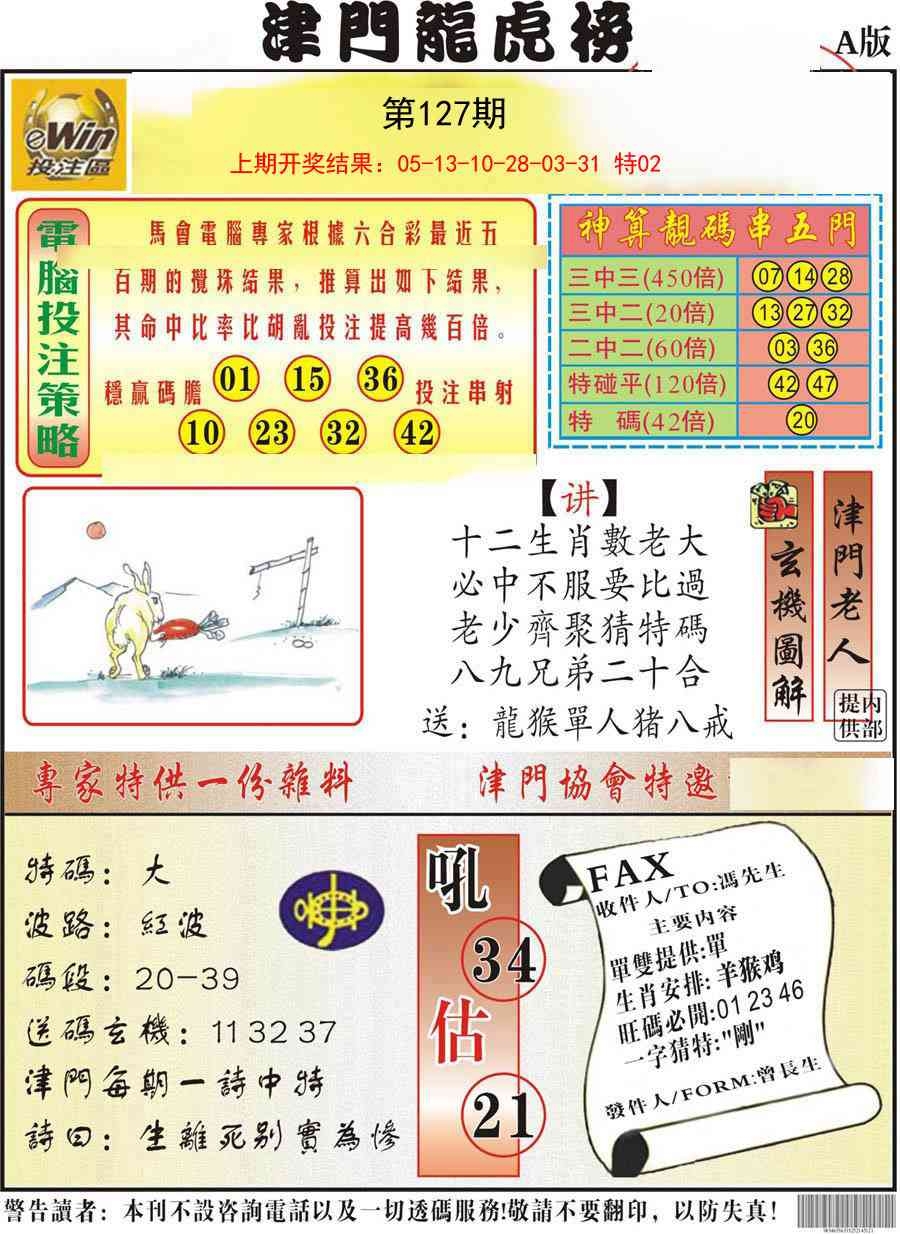 津門龍虎榜
A版
eWin
投注區
第127期
上期开奖结果：05-13-10-28-03-31 特02
電腦投注策略
馬會電腦專家根據六合彩最近五
百期的攪珠結果，推算出如下結果，
其命中比率比胡亂投注提高幾百倍。
穩贏碼膽 01 15 36 投注串射
10 23 32 42
神算靚碼串五門
三中三(450倍) 07 14 28
三中二(20倍) 13 27 32
二中二(60倍) 03 36
特碰平(120倍) 42 47
特 碼(42倍) 20
【讲】
十二生肖數老大
必中不服要比過
老少齊聚猜特碼
八九兄弟二十合
送：龍猴單人猪八戒
玄機圖解
津門老人
提供
内部
專家特供一份雜料
津門協會特邀
特碼：大
波路：紅波
碼段：20-39
送碼玄機：11 32 37
津門每期一詩中特
詩曰：生離死别實為慘
吼
34
估
21
FAX
收件人/TO:馮先生
主要内容
單雙提供:單
生肖安排:羊猴鸡
旺碼必開:01 23 46
一字猜特:"剛"
發件人/FORM:曾長生
警告讀者：本刊不設咨詢電話以及一切透碼服務!敬請不要翻印，以防失真！